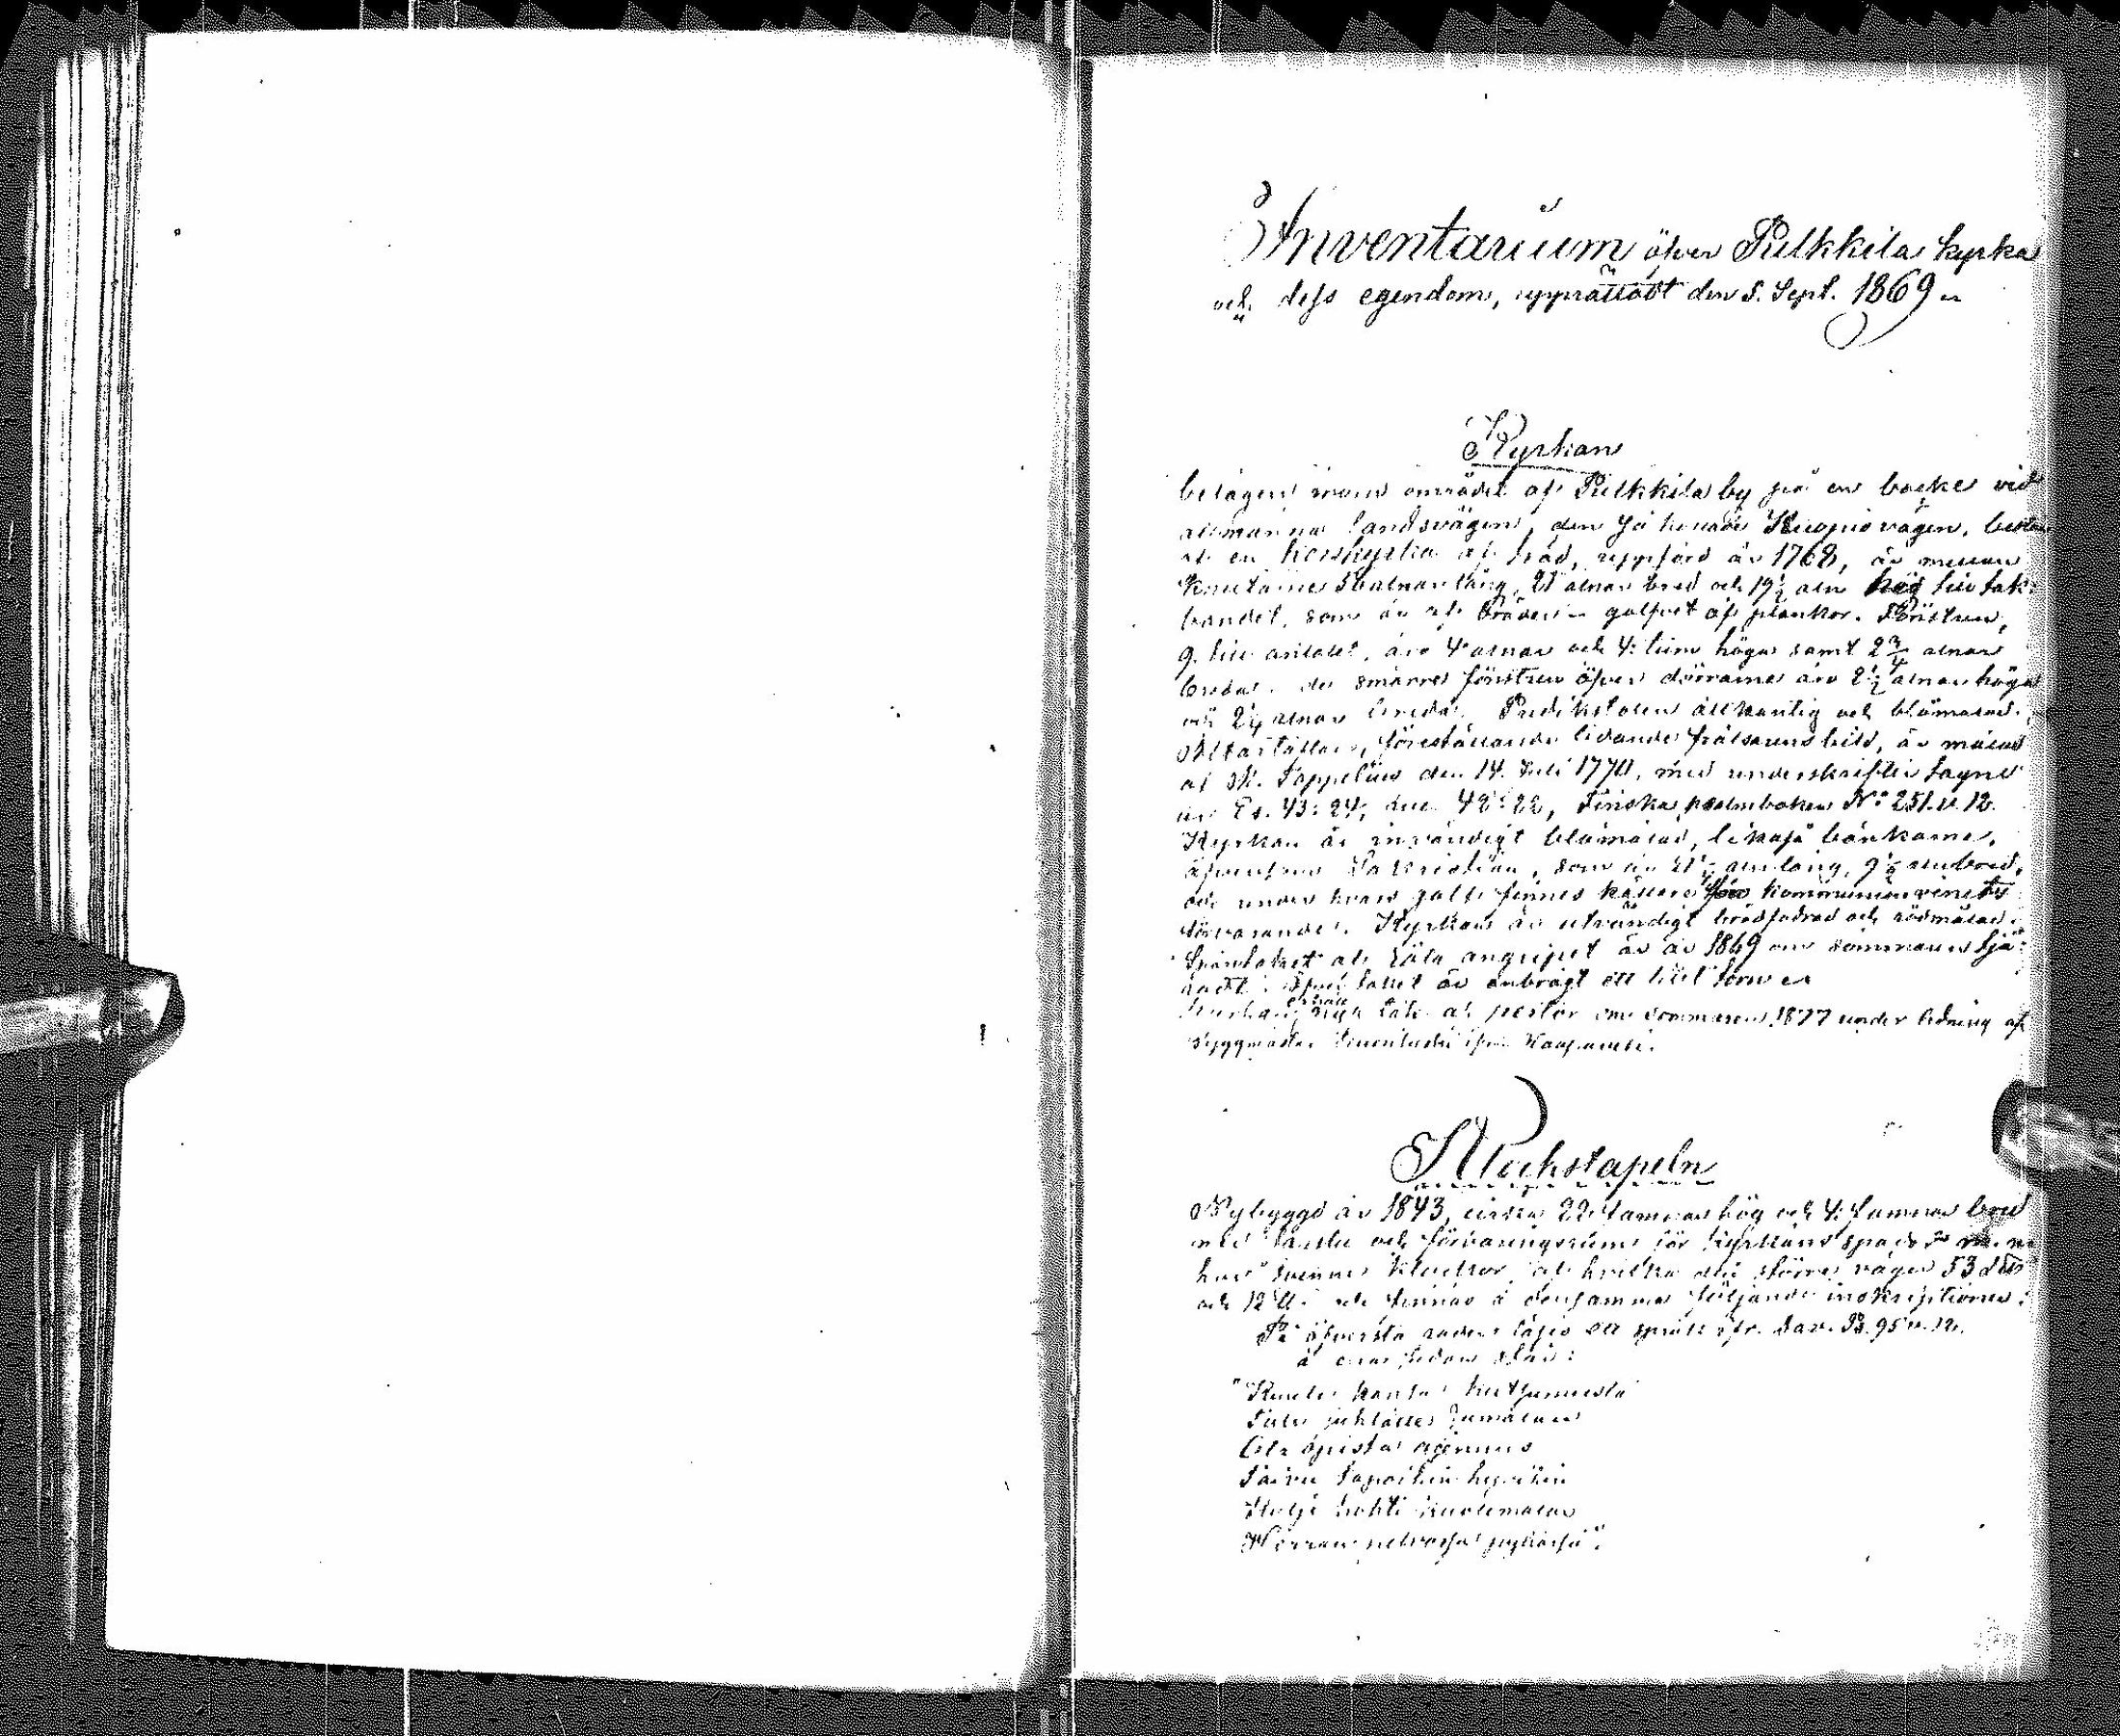 Inventarium öfver Pulkkila kyrka
och dess egendom, upprättadt den 5. Sept. 1869
Kyrkan
belägen inom området af Pulkkila by på en backe vid
allmänna landsvägen, den så kallade Kuopiovägen, består
af en korskyrka af träd, uppförd år 1768, är mellan
knutarne alnar lång, 21 alnar bred och 19½ aln hög till tak
bandet, som är af bräder - golfvet af plankor. Fönstren,
9 till antalet, äro 4 alnar och 4 tum höga samt 2¾ alnar
breda, de smärre fönstren öfver dörrarne äro 2½ alnar höga
och 2¼ alnar breda. Predikstolen åttkantig och blåmålad.
Altartaflan, föreställande lidande frälsarens bild, är målad
af M. Toppelius den 14. Juli 1770, med underskrifter tagne
ur Es. 43: 24, 22, Finska psalmboken No 251. v. 12.
Kyrkan är invändigt blåmålad, likaså bänkarne,
äfvensom Sakristian, som är aln lång, 9½ aln bred,
och under hvars golf finnes källare för kommunionvinets
förvarande. Kyrkan är utvändigt brädfodrad och rödmålad.
Spåntaket af röta angripet är år 1869 om sommaren tjä-
radt. Öfver taket är anbragt ett litet torn
Kyrkan erhöll nytt tak af pertor om sommaren 1877 under ledning af
byggmästar ifrån Haapavesi.
Klockstapeln
Nybyggd år 1843, cirka 22 famnar hög och 4 famnar bred
med och förvaringsrum för kyrkans spadar m. m.
har tvenne klockor af hvilka den större väger 53
och 12 ℔ och finnas å densamma följande inskriptioner:
På öfversta raden läses ett språk ifr. Dav. Ps. 95 v. 12.
å ena sidan står:
"Kuule kansa kutsumusta
Tule juhlalle Jumalan
Ota opista
Taivu tapoihin hyvihin
Kulje kohti kuolemata
Herran pelvossa pyhässä".